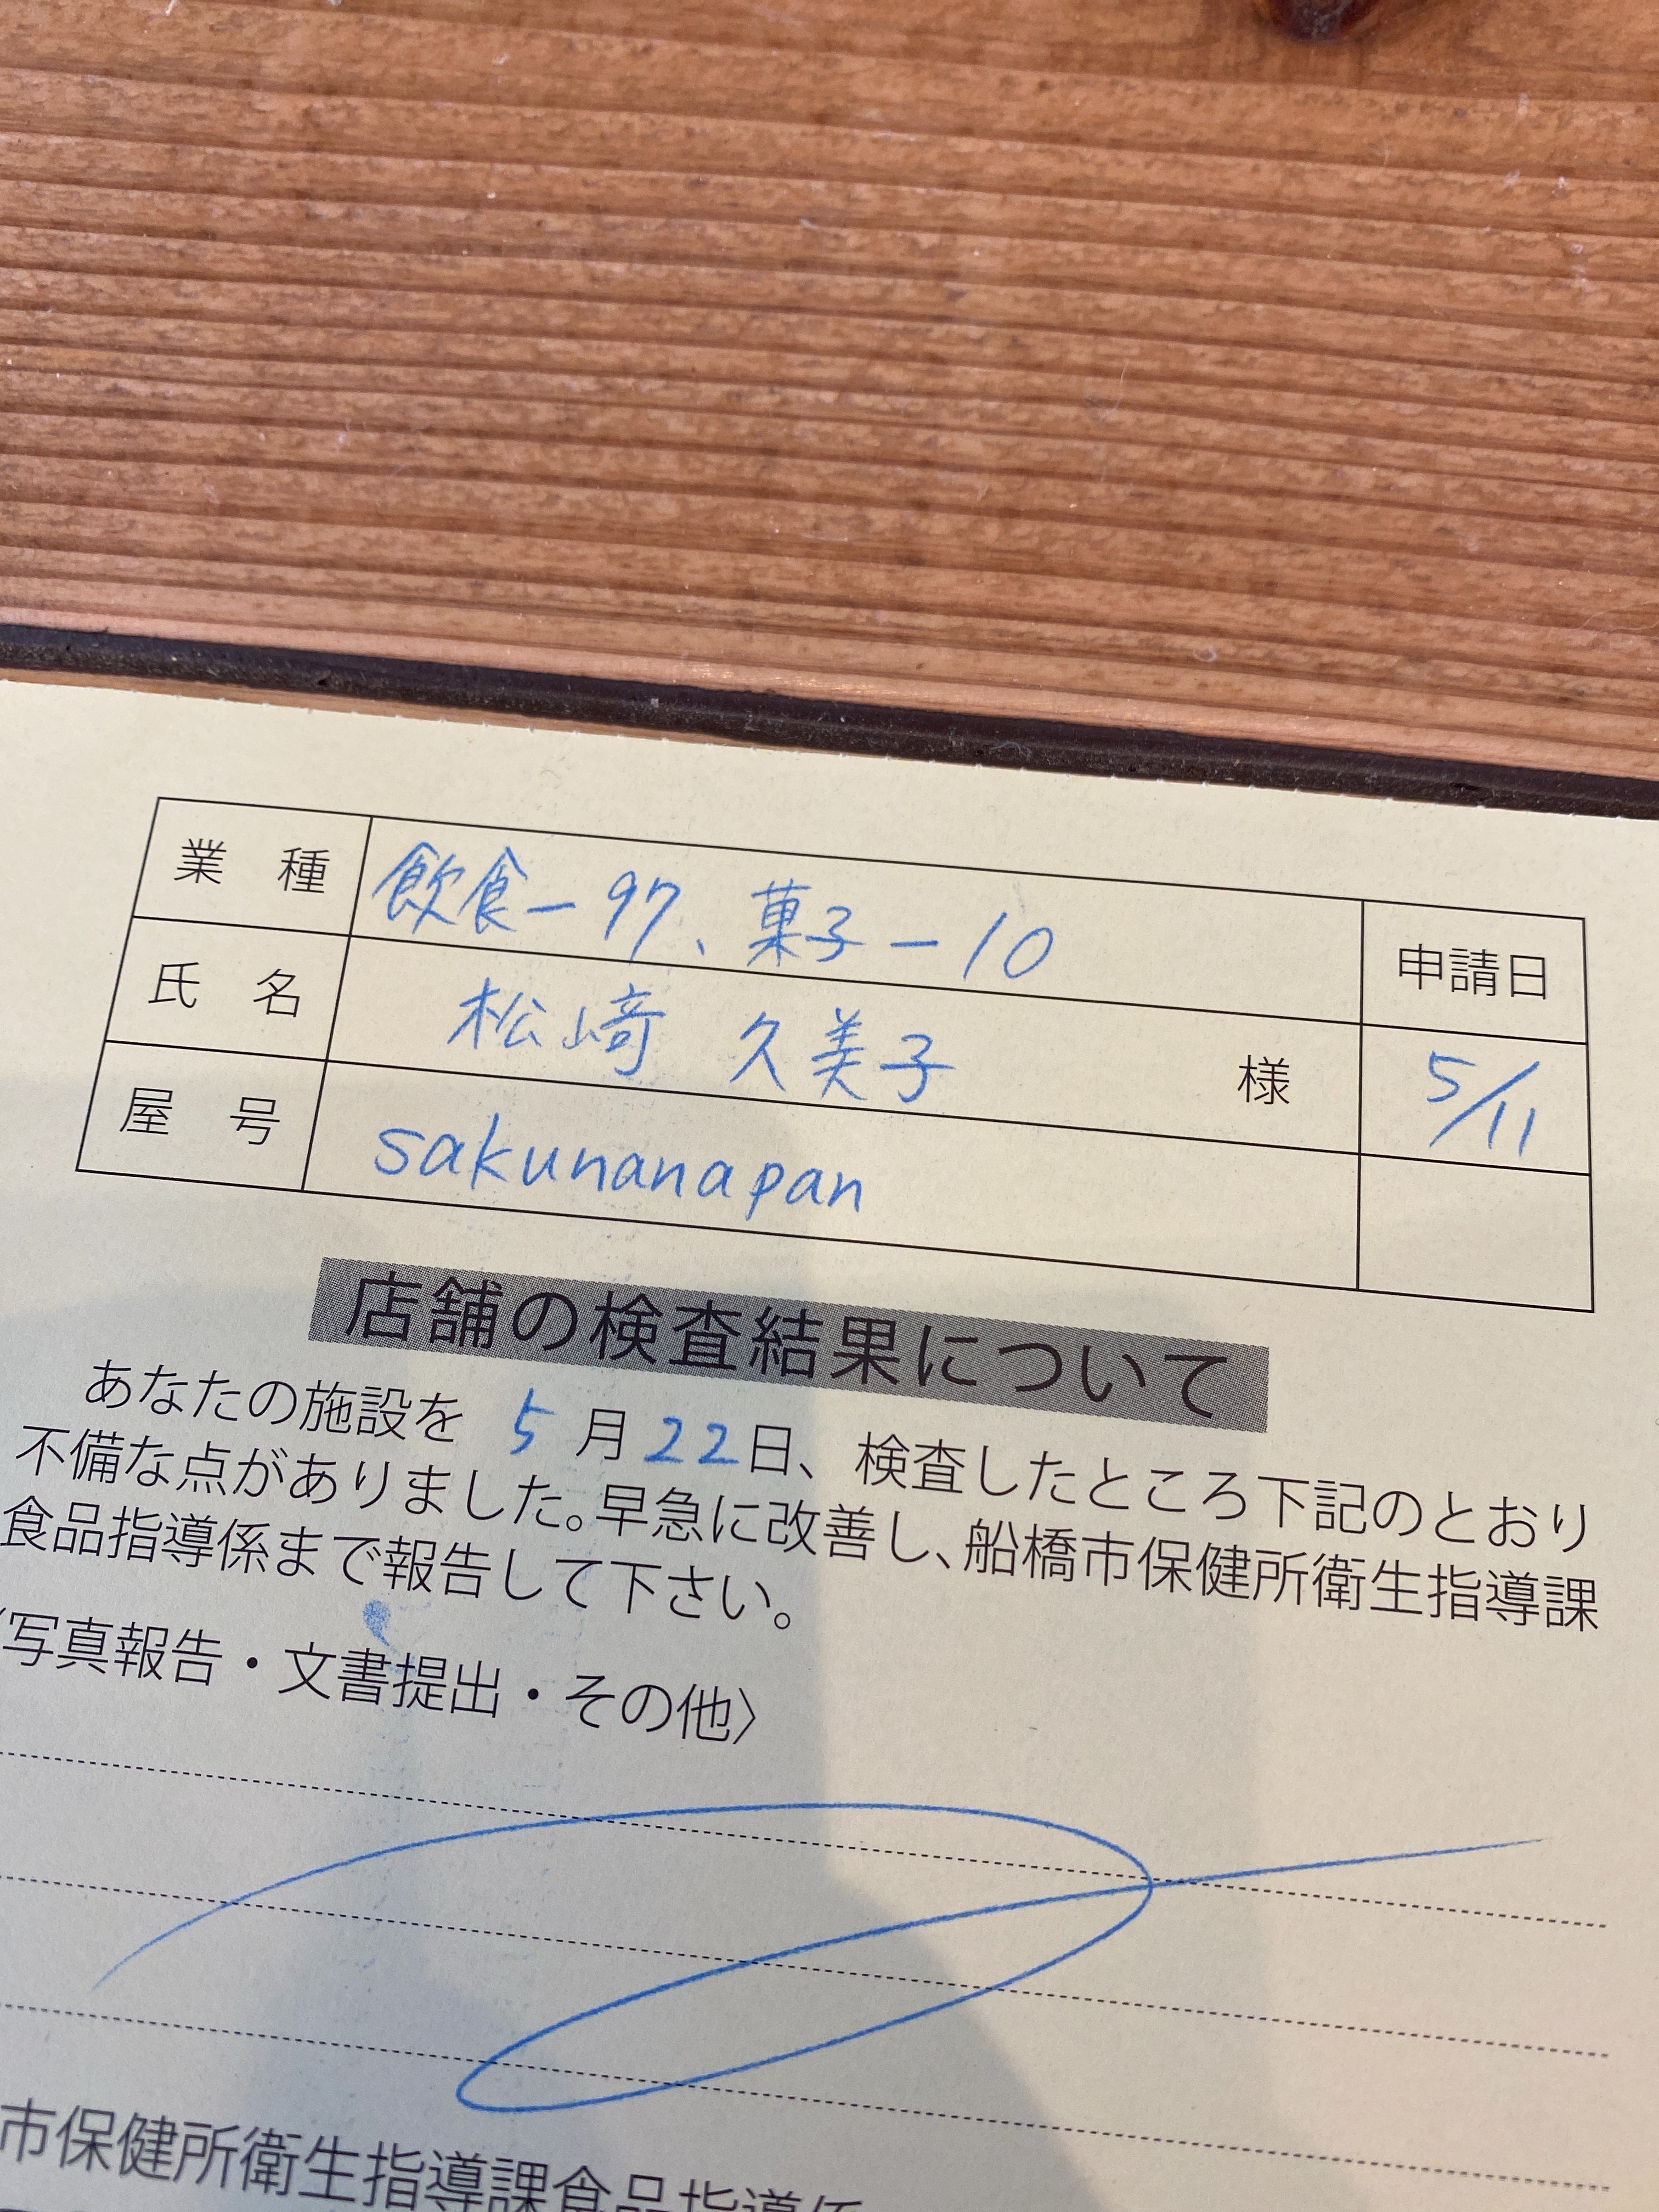 業種 飲食-97、菓子-10 申請日
氏名 松﨑 久美子 様 5/11
屋号 sakunanapan
店舗の検査結果について
あなたの施設を 5月22日、検査したところ下記のとおり
不備な点がありました。早急に改善し、船橋市保健所衛生指導課
食品指導係まで報告して下さい。
〈写真報告・文書提出・その他〉
市保健所衛生指導課食品指導係